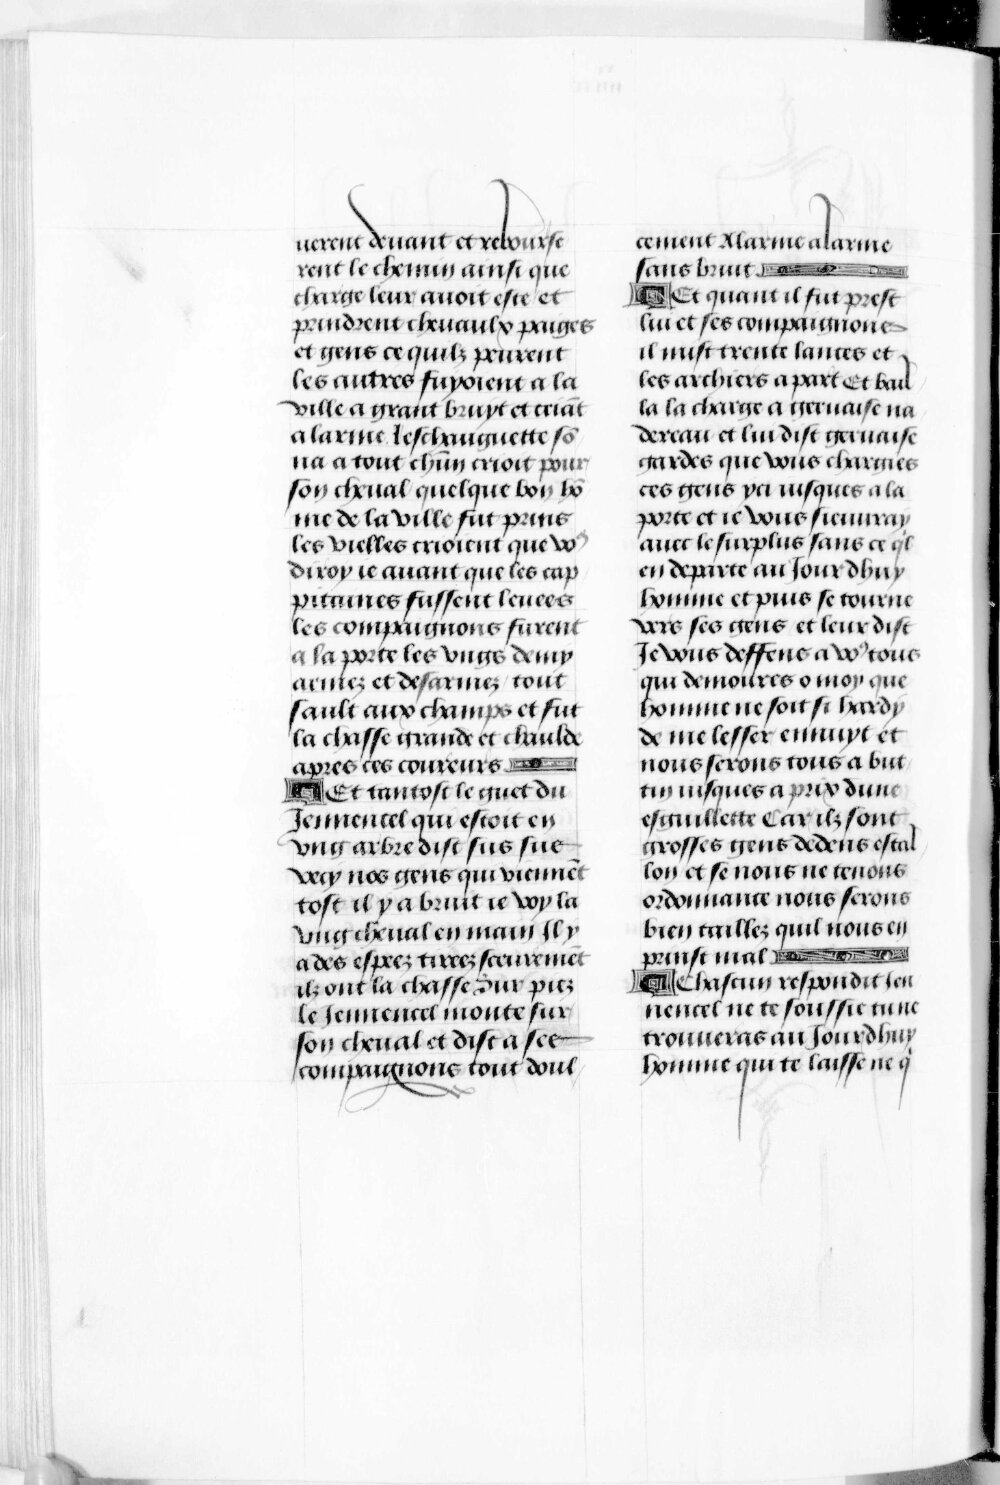 uerent deuant et rebourse
rent le chemin ainsi que
charge leur auoit este et
prindrent cheuaulx paiges
et gens ce quilz peurent
les autres fuyoient a la
ville a grant bruyt et criāt
alarme leschauguette sō
na a tout chūn crioit pour
son cheual quelque bon hō
me de la ville fut prins
les vielles crioient que voꝰ
diroy ie auant que les cap
pitaines fussent leuees
les compaignons furent
a la porte les vngs demy
armez et desarmez / tout
sault aux champs et fut
la chasse grande et chaulde
apres ces coureurs
Et tantost le guet du
Jennencel qui estoit en
vng arbre dist sus sus
vecy nos gens qui viennēt
tost il y a bruit ie voy la
vng cheual en main Il y
a des esprez tirrez sceuremēt
ilz ont la chasse Sur piez
le Jennencel monte sur
son cheual et dist a ses
compaignons tout doul
cement Alarme alarme
sans bruit
Et quant il fut prest
lui et ses compaignons
il mist trente lances et
les archiers a part Et bail
la la charge a geruaise na
dereau et lui dist geruaise
gardes que vous chargies
ces gens yci iusques a la
porte et ie vous sieuuray
auec le surplus sans ce q̄l
en departe au Jourdhuy
homme et puis se tourne
vers ses gens et leur dist
Je vous deffens a voꝰ tous
qui demoures o moy que
homme ne soit si hardy
de me lesser ennuyt et
nous serons tous a but
tin iusques a prix dune
esguillette Car ilz sont
grosses gens dedens estal
lon et se nous ne tenons
ordonnance nous serons
bien taillez quil nous en
prinst mal
Chascun respondit Jen
nencel ne te soussie tu ne
trouueras au Jourdhuy
homme qui te laisse ne q̄